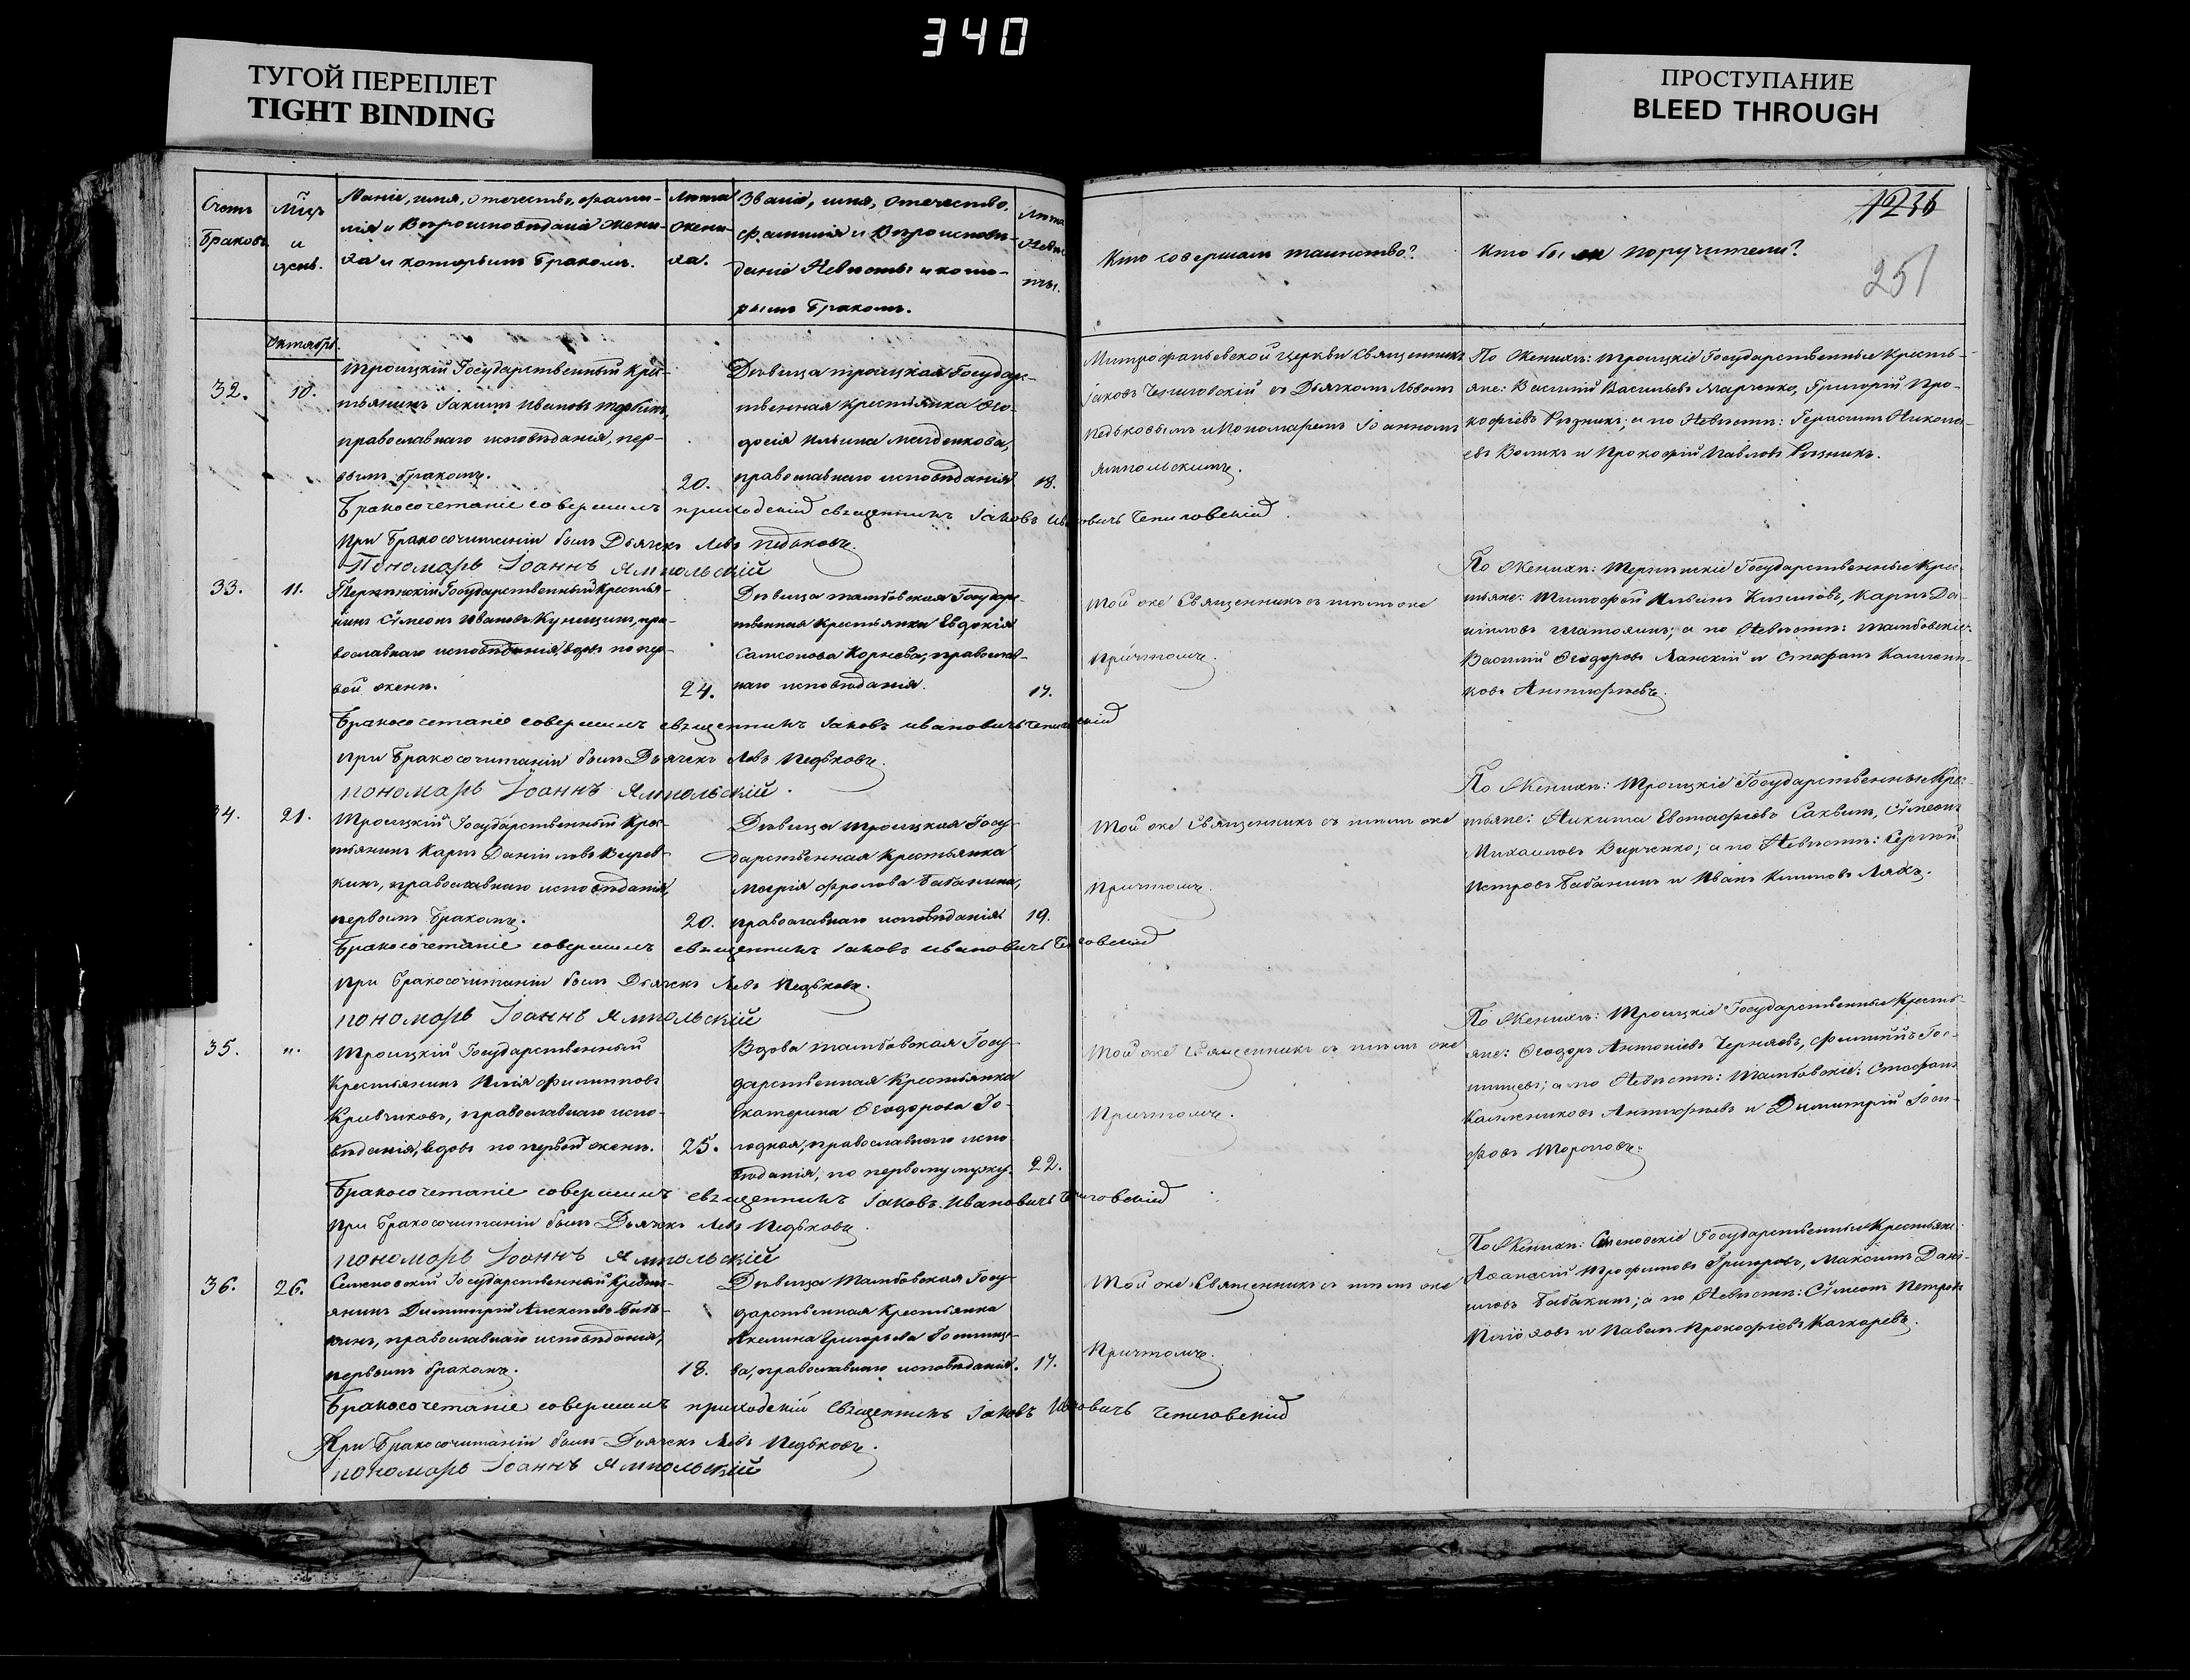 340
ТУГОЙ ПЕРЕПЛЕТ
TIGHT BINDING
ПРОСТУПАНИЕ
BLEED THROUGH
Счетъ
Браковъ
Мѣц
и
день.
Званіе, имя, отечество, фами-
лія и вѣроисповѣданіе жени-
ха и которымъ бракомъ.
Лѣта
жени-
ха.
Званіе, имя, отечество,
фамилія и вѣроисповѣ-
даніе невѣсты и кото-
рымъ бракомъ.
Лѣта
невѣ-
сты.
Кто совершалъ таинство?
Кто были поручители?
1236
251
Октябрь.
32.
10.
Троицкій Государственный кре-
стьянинъ Іакимъ Ивановъ
православнаго исповѣданія, пер-
вымъ бракомъ.
20.
Дѣвица троицкая Государ-
ственная крестьянка Ѳео-
досія Ильина
православнаго исповѣданія
18.
Митрофаньевской церкви священникъ
Іаковъ Чепиговскій съ Дьячкомъ Львомъ
Педьковымъ и Пономаремъ Іоанномъ
Ямпольскимъ.
По женихѣ: троицкіе Государственные кресть-
яне: Василій Васильевъ Марченко, Григорій Про-
кофіевъ Рѣзникъ; а по невѣстѣ: Герасимъ Никола-
евъ Воликъ и Прокофій Павловъ Рѣзникъ.
Бракосочетаніе совершилъ приходскій священникъ Іаковъ Ивановичъ Чепиговскій
При бракосочитаніи былъ Дьячекъ Левъ Педьковъ.
Пономарь Іоаннъ Ямпольскій
33.
11.
Государственный крестья-
нинъ Сѵмеонъ Ивановъ пра-
вославнаго исповѣданія, вдовъ по пер-
вой женѣ.
24.
Дѣвица тамбовская Государ-
ственная крестьянка Евдокія
Самсонова Корнева, православ-
наго исповѣданія.
17.
Той же Священникъ съ тѣмъ же
Причтомъ.
По женихѣ: Государственные кре-
стьяне: Тимофей Ильинъ Карпъ Да-
ніиловъ а по невѣстѣ: тамбовскіе:
Василій Ѳеодоровъ Ланскій и Стефанъ
Антифѣевъ.
Бракосочетаніе совершилъ священникъ Іаковъ Ивановичъ Чепиговскій
При бракосочитаніи былъ Дьячекъ Левъ Педьковъ.
пономарь Іоаннъ Ямпольскій.
34.
21.
Троицкій Государственный кре-
стьянинъ Карпъ Даніиловъ
православнаго исповѣданія,
первымъ бракомъ.
20.
Дѣвица троицкая Госу-
дарственная крестьянка
Марія Фролова Бабанина,
православнаго исповѣданія
19.
Той же Священникъ съ тѣмъ же
Причтомъ.
По женихѣ: Троицкіе Государственные кре-
стьяне: Никита Евстафіевъ Сѵмеонъ
Михаиловъ а по невѣстѣ: Сергѣй
Петровъ Бабанинъ и Иванъ Климовъ Ляхъ.
Бракосочетаніе совершилъ священникъ Іаковъ Ивановичъ Чепиговскій
При бракосочитаніи былъ Дьячекъ Левъ Педьковъ.
пономарь Іоаннъ Ямпольскій
35.
"
Троицкій Государственный
крестьянинъ Илія Филипповъ
Кривчиковъ, православнаго испо-
вѣданія, вдовъ по первой женѣ.
25.
Вдова тамбовская Госу-
дарственная крестьянка
Екатерина Ѳеодорова Го-
лодная, православнаго испо-
вѣданія, по первому мужу.
22.
Той же Священникъ съ тѣмъ же
Причтомъ.
По женихѣ: Троицкіе Государственные кресть-
яне: Ѳеодоръ Антоніевъ Черняевъ,
а по невѣстѣ: тамбовскіе: Стефанъ
Антифѣевъ и Димитрій Іоси-
фовъ Тороповъ.
Бракосочетаніе совершилъ священникъ Іаковъ Ивановичъ Чепиговскій
При бракосочитаніи былъ Дьячекъ Левъ Педьковъ.
пономарь Іоаннъ Ямпольскій
36.
26.
Государственный крестья-
янинъ Димитрій Алексѣевъ Баба-
кинъ, православнаго исповѣданія,
первымъ бракомъ.
18.
Дѣвица Тамбовская Госу-
дарственная крестьянка
Акилина Григорьева Гостище-
ва, православнаго исповѣданія.
17.
Той же Священникъ съ тѣмъ же
Причтомъ.
По женихѣ: Государственные крестьяне:
Аѳанасій Трофимовъ Григоровъ, Максимъ Дані-
иловъ Бабакинъ; а по невѣстѣ: Сѵмеонъ Петровъ
и Павелъ Прокофіевъ Качкаревъ.
Бракосочетаніе совершилъ приходскій священникъ Іаковъ Ивановичъ Чепиговскій
При бракосочитаніи былъ Дьячекъ Левъ Педьковъ.
пономарь Іоаннъ Ямпольскій